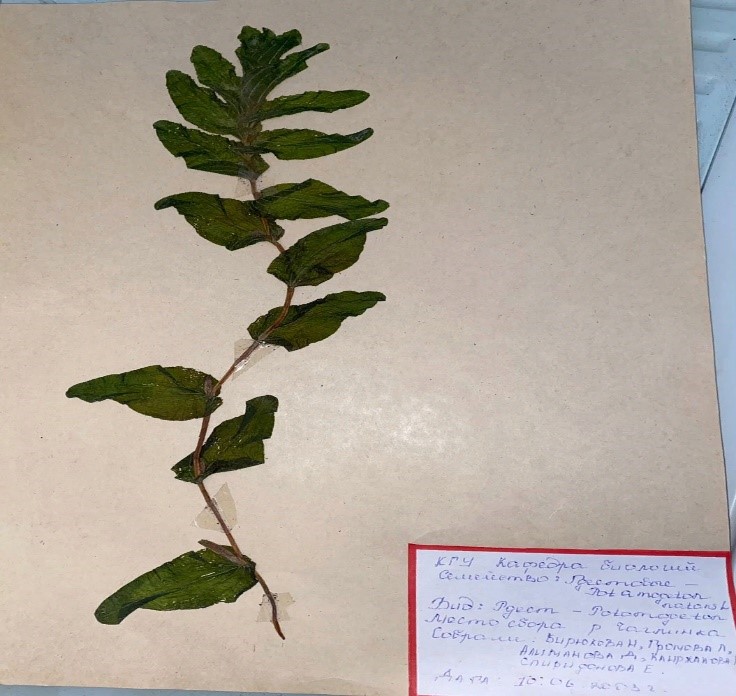 КГУ Кафедра биологии
Семейство: Рдестовые –
Potamogeton
natans L
Вид: Рдест – Potamogeton
Место сбора р Чаглинка
Собрали: Бирюкова Н, Громова Л,
Алиманова Д,
Спиридонова Е.
Дата: 10.06